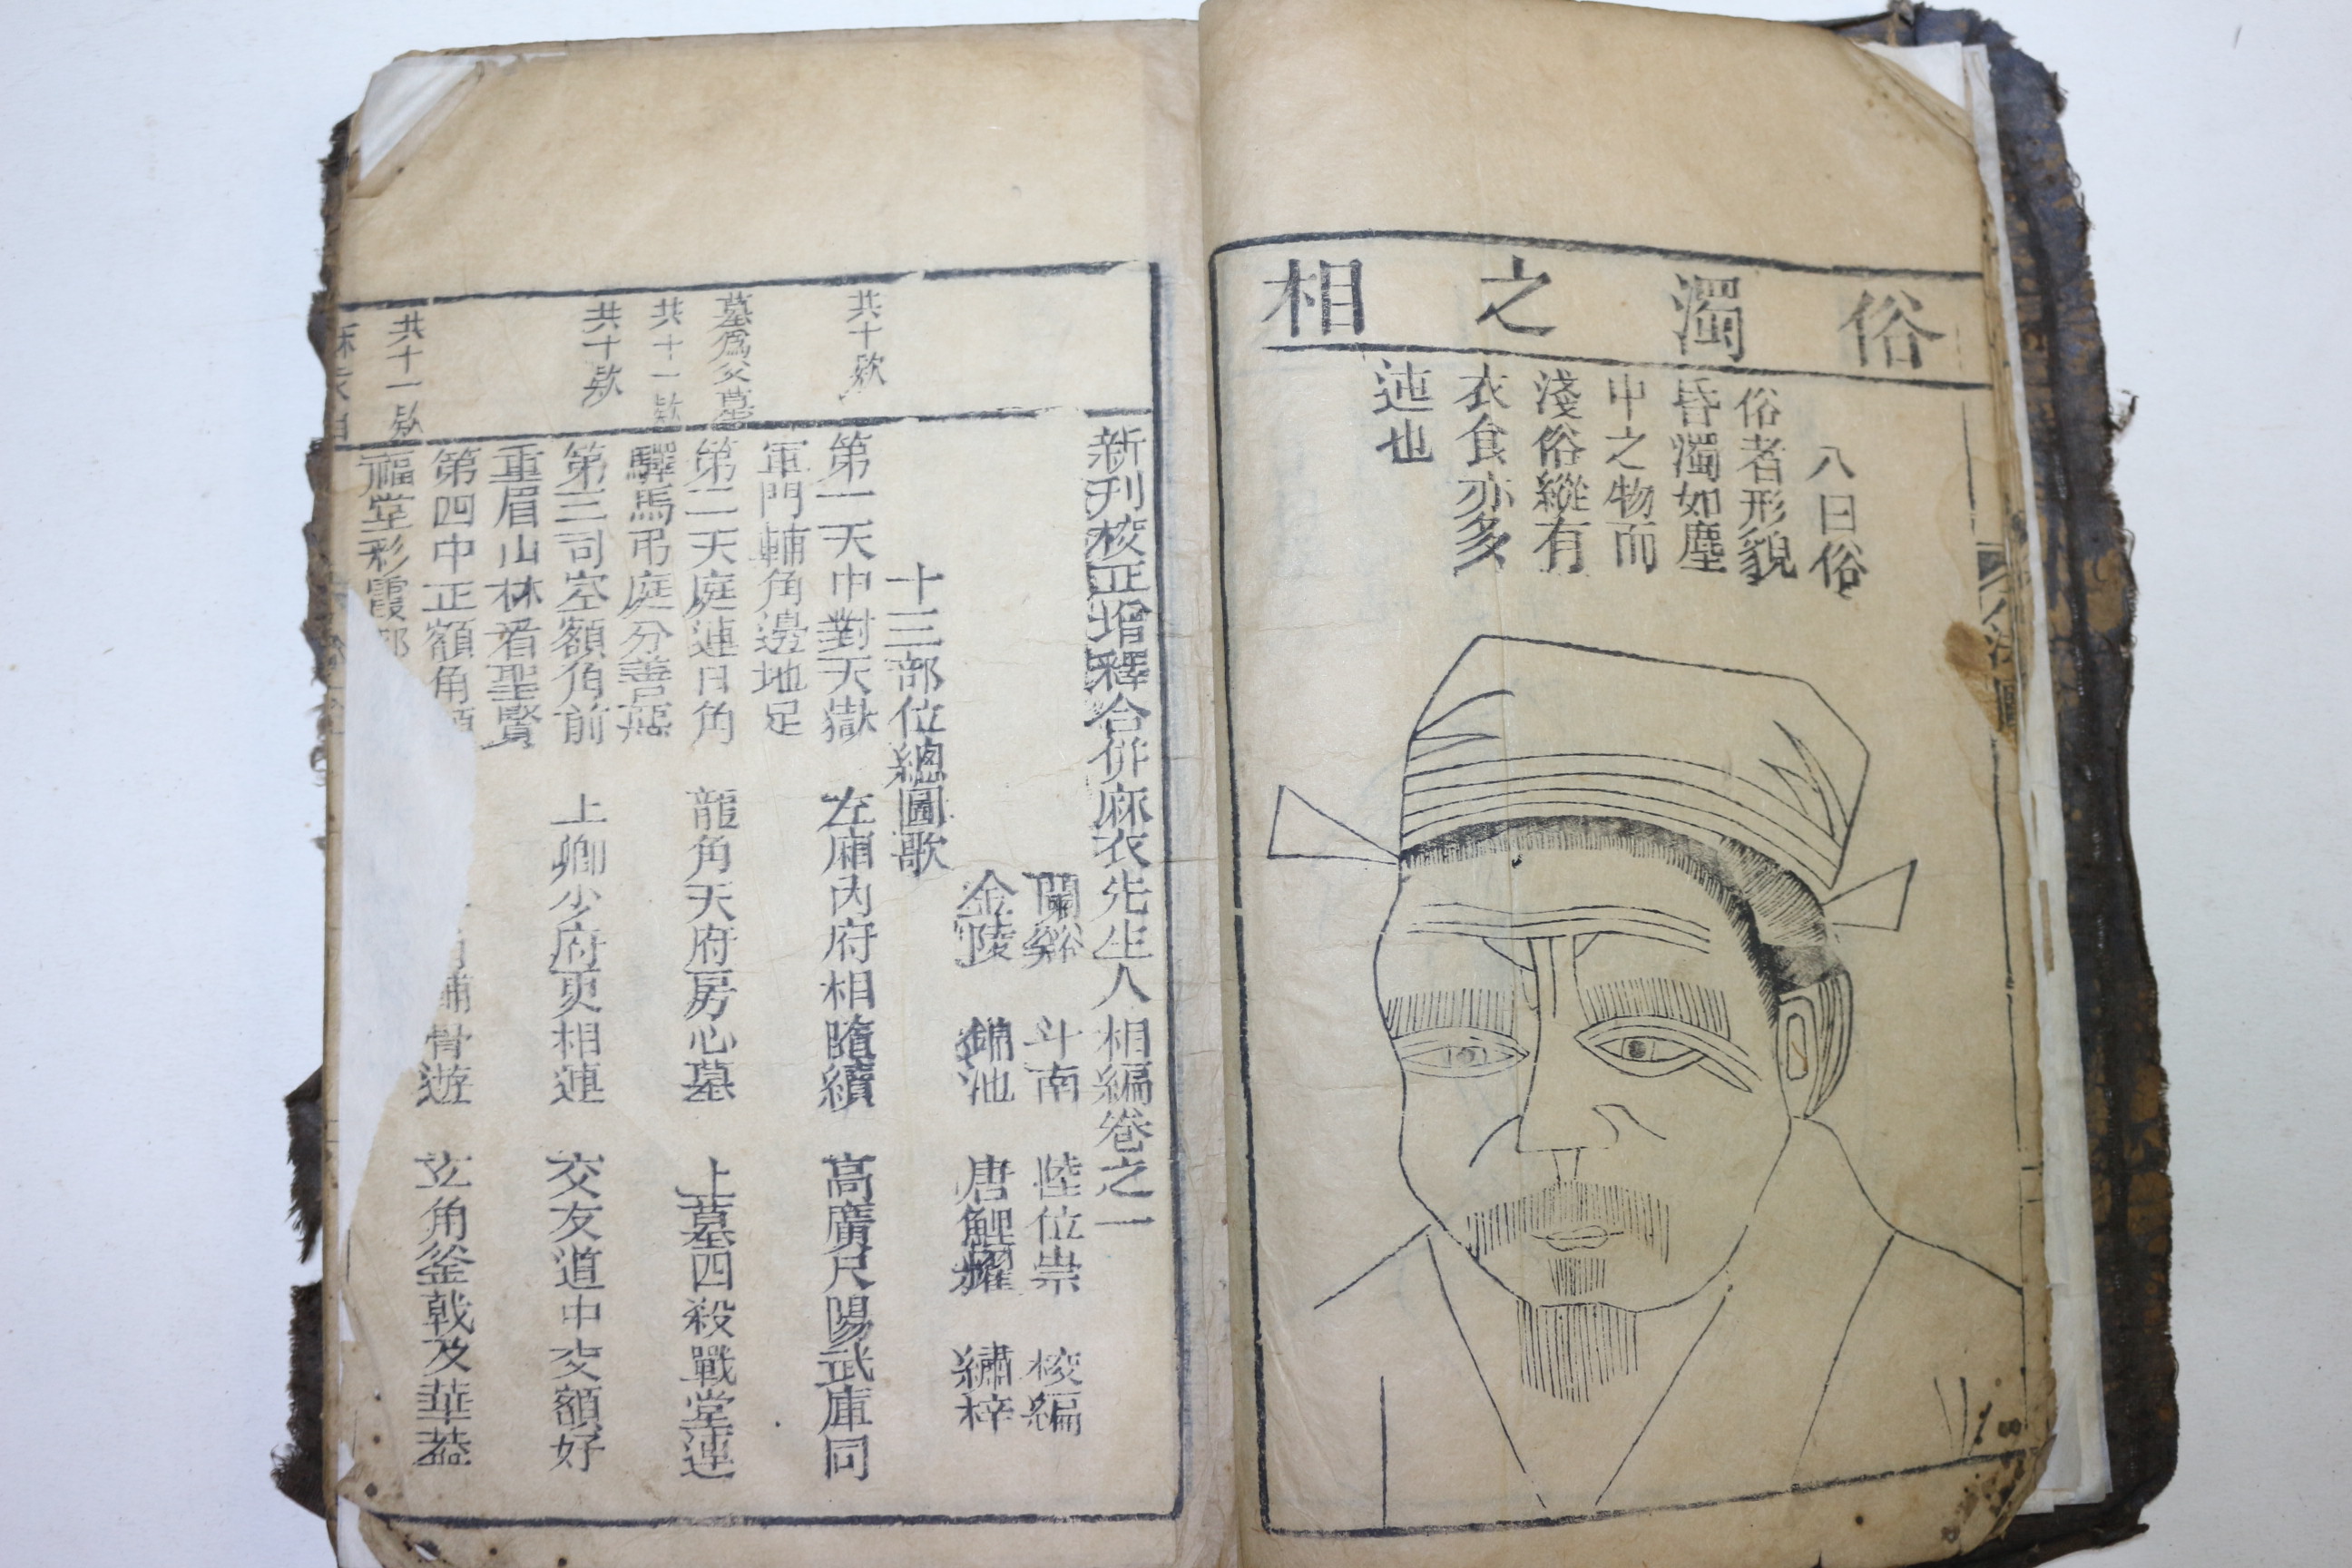 俗濁之相
八曰俗
俗者形貌
昏濁如塵
中之物而
淺俗縱有
衣食亦多
迍也
新刊校正增釋合併麻衣先生人相編卷之一
蘭谿 斗南 陸位崇 校編
金陵 錦池 唐鯉耀 繡梓
十三部位總圖歌
共十欵
第一天中對天獄 左廂內府相隨續 高廣尺陽武庫同
軍門輔角邊地足
墓爲父墓
第二天庭連日角 龍角天府房心墓 上墓四殺戰堂連
共十一欵
驛馬弔庭分善惡
共十欵
第三司空額角前 上卿少府更相連 交友道中交額好
重眉山林看聖賢
第四中正額角 輔骨遊 玄角釜戟及華蓋
共十一欵
福堂彩霞